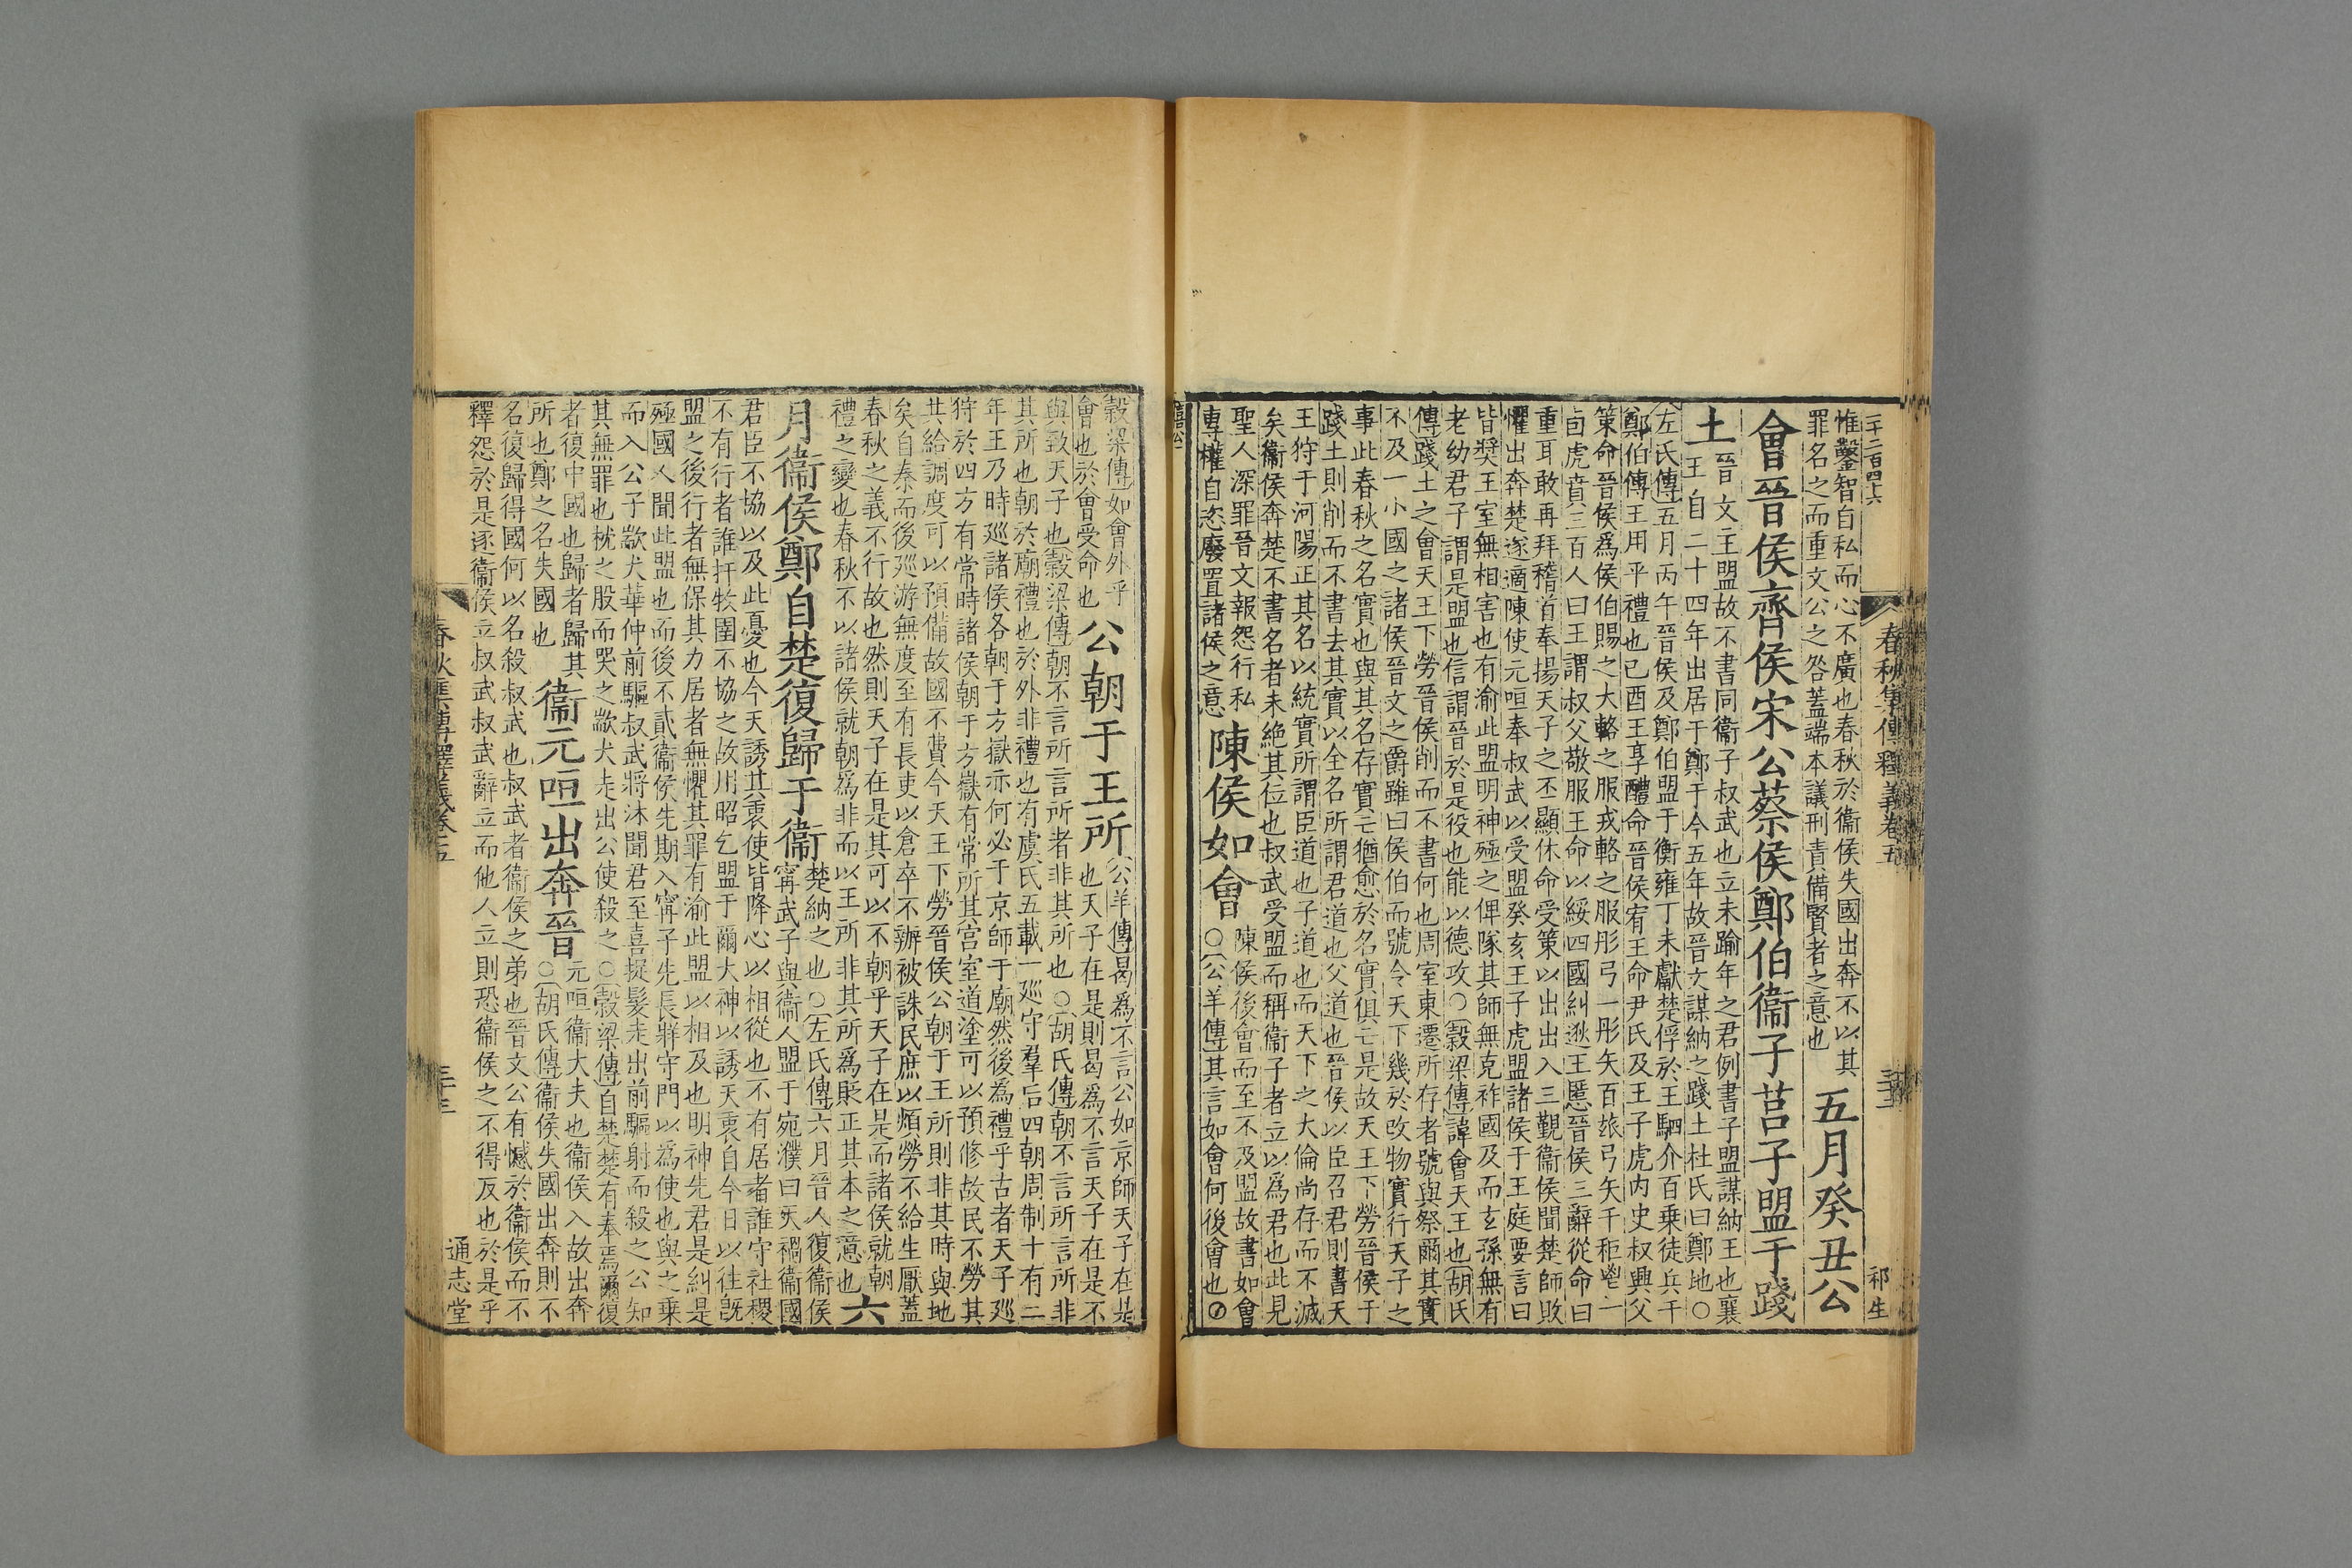 二千二百四十六
春秋集傳釋義卷五
三十二
祁生
惟鑿智自私而心不廣也春秋於衞侯失國出奔不以其
罪名之而重文公之咎蓋端本議刑責備賢者之意也
五月癸丑公
會晉侯齊侯宋公蔡侯鄭伯衞子莒子盟于踐
土
晉文主盟故不書同衞子叔武也立未踰年之君例書子盟謀納王也襄
王自二十四年出居于鄭于今五年故晉文謀納之踐土杜氏曰鄭地〇
左氏傳五月丙午晉侯及鄭伯盟于衡雍丁未獻楚俘於王駟介百乗徒兵千
鄭伯傳王用平禮也己酉王享醴命晉侯宥王命尹氏及王子虎内史叔興父
策命晉侯爲侯伯賜之大輅之服戎輅之服彤弓一彤矢百玈弓矢千秬鬯一
卣虎賁三百人曰王謂叔父敬服王命以綏四國糾逖王慝晉侯三辭從命曰
重耳敢再拜稽首奉揚天子之丕顯休命受策以出出入三覲衞侯聞楚師敗
懼出奔楚遂適陳使元咺奉叔武以受盟癸亥王子虎盟諸侯于王庭要言曰
皆奬王室無相害也有渝此盟明神殛之俾隊其師無克祚國及而玄孫無有
老幼君子謂是盟也信謂晉於是役也能以德攻〇穀梁傳諱會天王也胡氏
傳踐土之會天王下勞晉侯削而不書何也周室東遷所存者號與祭爾其實
不及一小國之諸侯晉文之爵雖曰侯伯而號令天下幾於改物實行天子之
事此春秋之名實也與其名存實亡猶愈於名實俱亡是故天王下勞晉侯于
踐土則削而不書去其實以全名所謂君道也父道也晉侯以臣召君則書天
王狩于河陽正其名以統實所謂臣道也子道也而天下之大倫尚存而不滅
矣衞侯奔楚不書名者未絶其位也叔武受盟而稱衞子者立以爲君也此見
聖人深罪晉文報怨行私
專權自恣廢置諸侯之意
陳侯如會
陳侯後會而至不及盟故書如會
〇公羊傳其言如會何後會也〇
穀梁傳如會外乎
會也於會受命也
公朝于王所
公羊傳曷爲不言公如京師天子在是
也天子在是則曷爲不言天子在是不
與致天子也穀梁傳朝不言所言所者非其所也〇胡氏傳朝不言所言所非
其所也朝於廟禮也於外非禮也有虞氏五載一廵守羣后四朝周制十有二
年王乃時廵諸侯各朝于方嶽亦何必于京師于廟然後為禮乎古者天子廵
狩於四方有常時諸侯朝于方嶽有常所其宫室道塗可以預修故民不勞其
共給調度可以預備故國不費今天王下勞晉侯公朝于王所則非其時與地
矣自秦而後廵游無度至有長吏以倉卒不辦被誅民庶以煩勞不給生厭蓋
春秋之義不行故也然則天子在是其可以不朝乎天子在是而諸侯就朝
禮之變也春秋不以諸侯就朝爲非而以王所非其所爲貶正其本之意也
六
月衞侯鄭自楚復歸于衞
楚納之也〇左氏傳六月晉人復衞侯
甯武子與衞人盟于宛濮曰天禍衞國
君臣不協以及此憂也今天誘其衷使皆降心以相從也不有居者誰守社稷
不有行者誰扞牧圉不協之故用昭乞盟于爾大神以誘天衷自今日以往旣
盟之後行者無保其力居者無懼其罪有渝此盟以相及也明神先君是糾是
殛國人聞此盟也而後不貳衞侯先期入甯子先長牂守門以為使也與之乗
而入公子歂犬華仲前驅叔武將沐聞君至喜捉髮走出前驅射而殺之公知
其無罪也枕之股而哭之歂犬走出公使殺之〇穀梁傳自楚楚有奉焉爾復
者復中國也歸者歸其
所也鄭之名失國也
衞元咺出奔晉
元咺衞大夫也衞侯入故出奔
〇胡氏傳衞侯失國出奔則不
名復歸得國何以名殺叔武也叔武者衞侯之弟也晉文公有憾於衞侯而不
釋怨於是逐衞侯立叔武叔武辭立而他人立則恐衞侯之不得反也於是乎
春秋集傳釋義卷五
三十三
通志堂